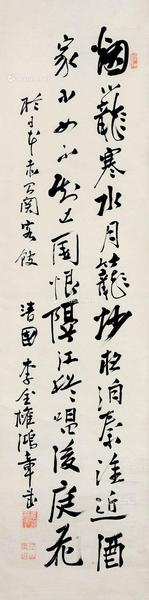 烟籠寒水月籠沙夜泊秦淮近酒
家商女不知亡國恨隔江猶唱後庭花
於日本赤间関客館 清國 李 鴻章書